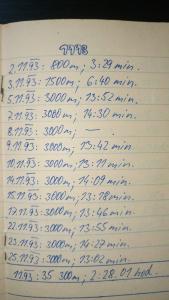 1993
2.11.93: 800m; 3:29 min.
3.11.93: 1500m; 6:40 min.
5.11.93: 3000m; 13:52 min.
7.11.93: 3000m; 14:30 min.
8.11.93: 3000m; — .
9.11.93: 3000m; 13:42 min.
10.11.93: 3000m; 13:11 min.
14.11.93: 3000m; 14:09 min.
15.11.93: 3000m; 13:18 min.
17.11.93: 3000m; 13:46 min.
22.11.93: 3000m; 13:55 min.
23.11.93: 3000m; 14:27 min.
25.11.93: 3000m; 13:02 min.
11.93: 35 300m; 2:28.01 hod.